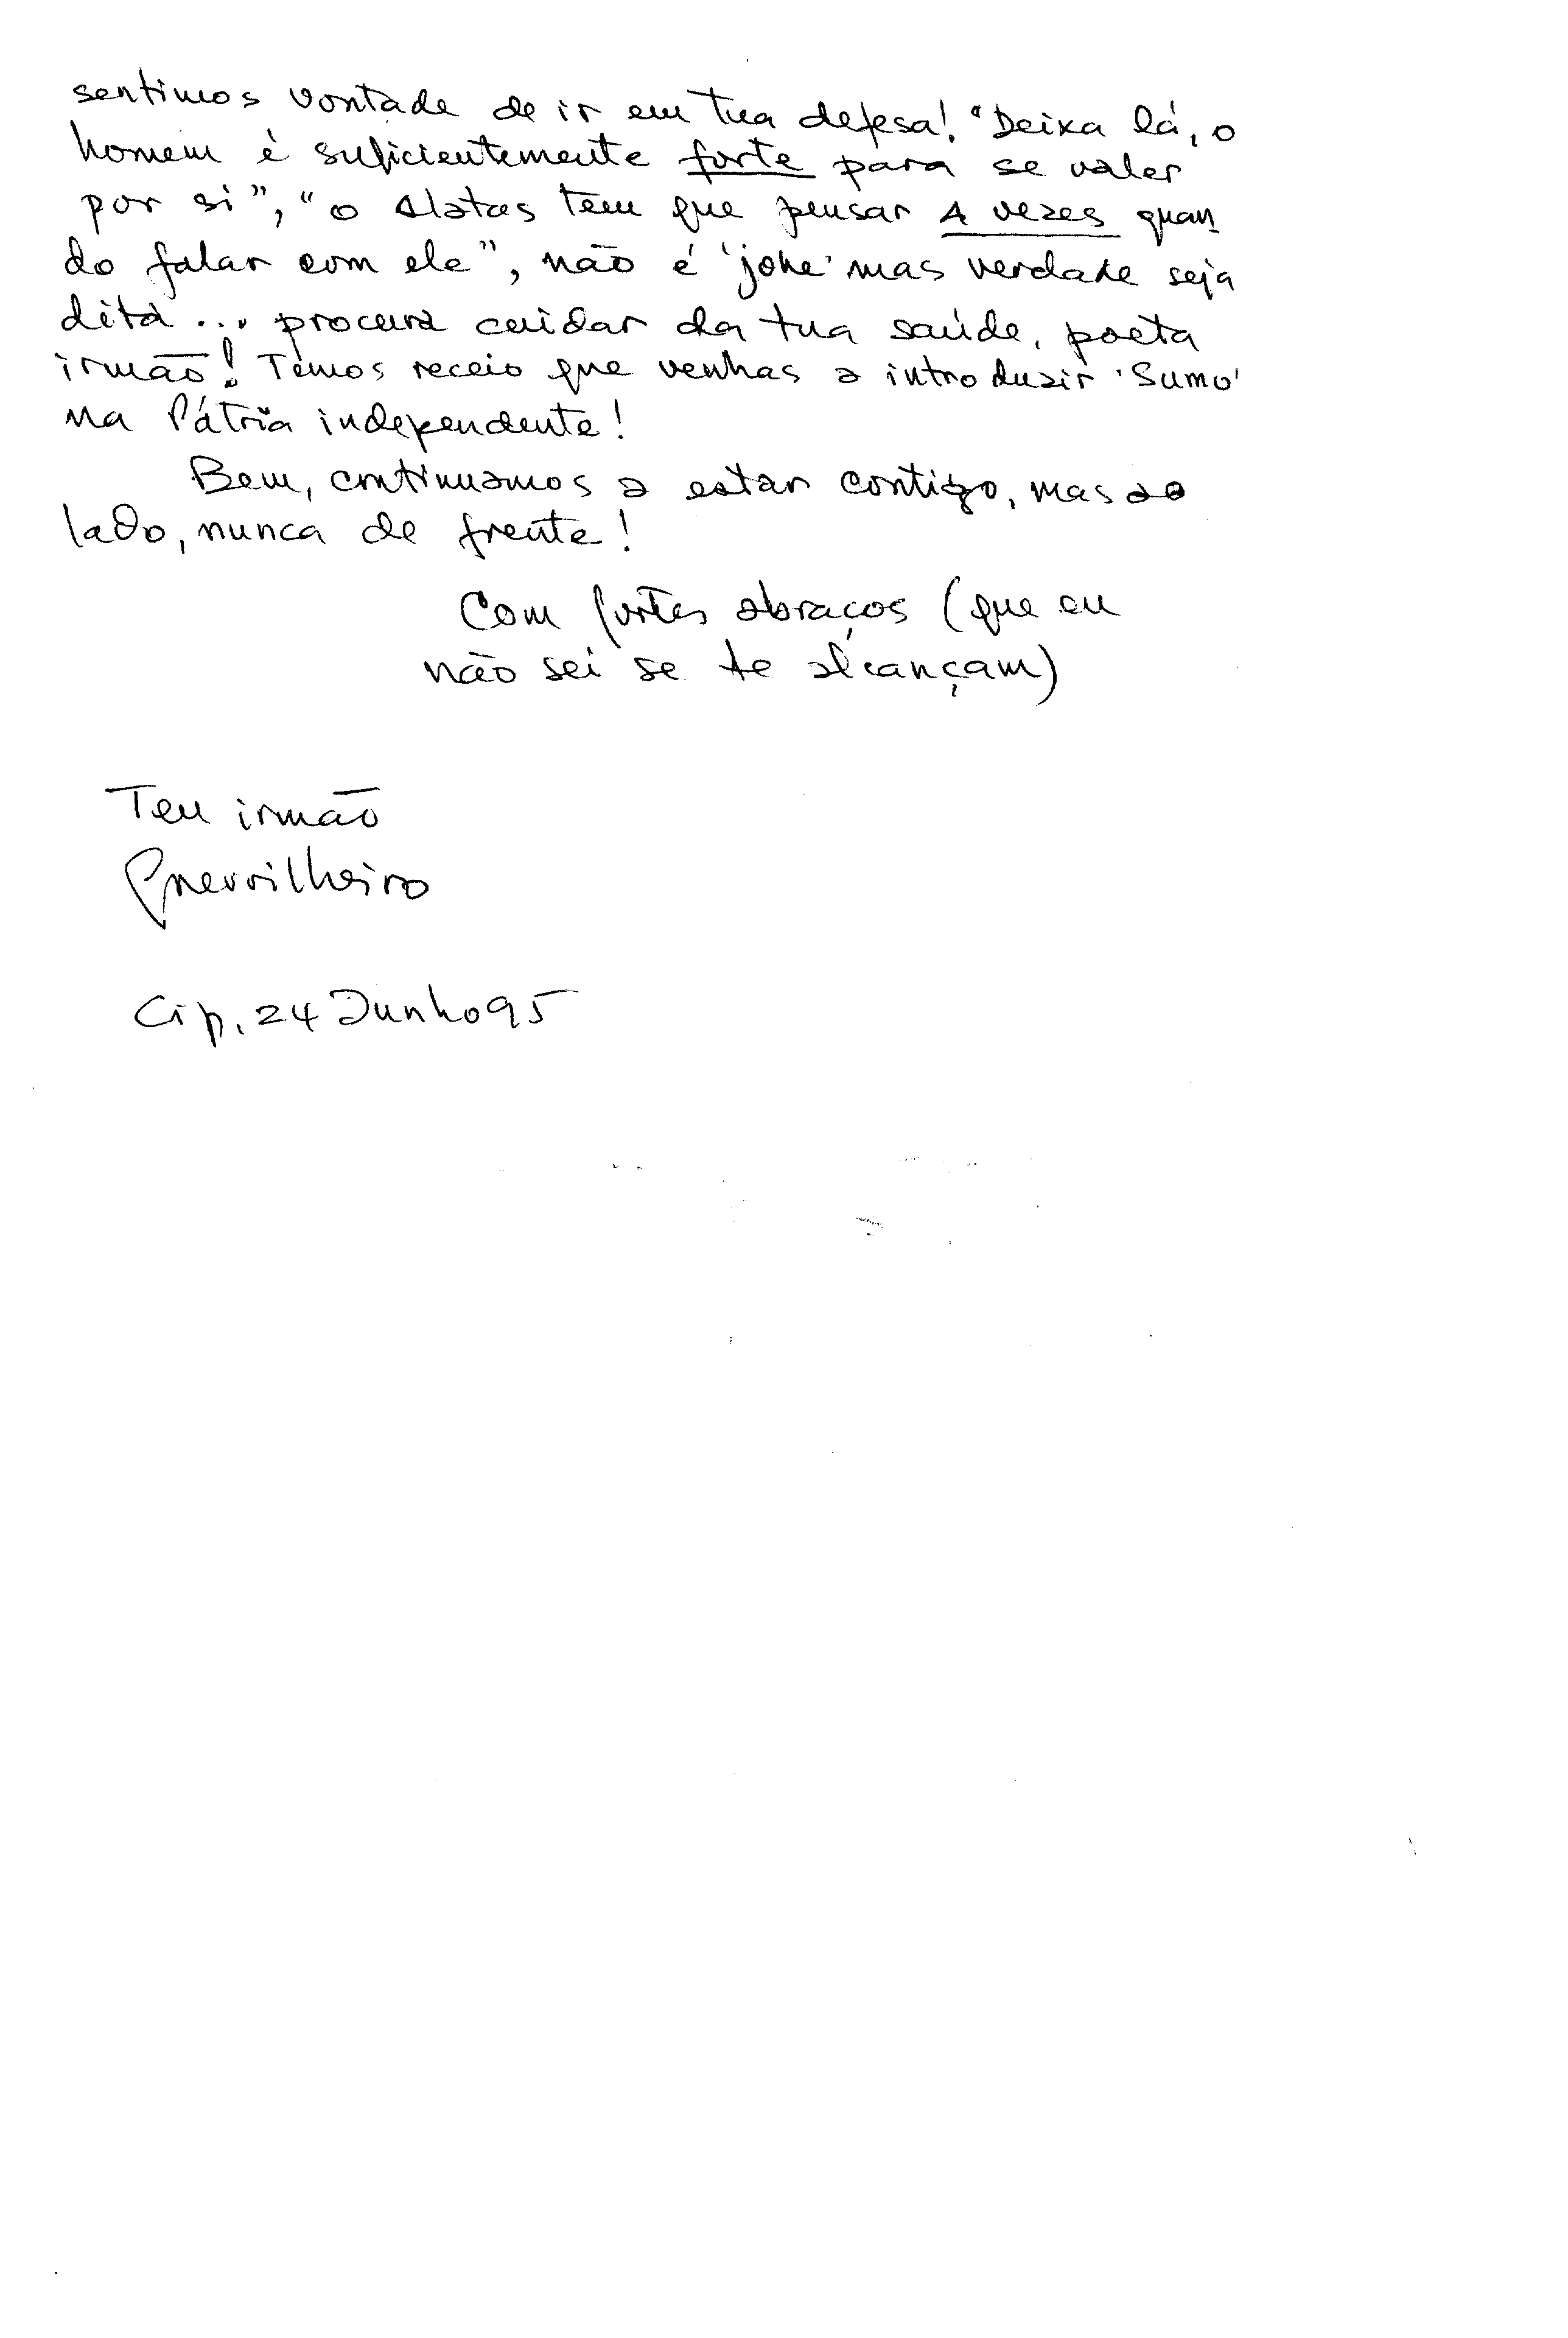 sentimos vontade de ir em tua defesa! "Deixa lá, o
homem é suficientemente forte para se valer
por si", "o Alatas tem que pensar 4 vezes quan
do falar com ele", não é 'joke' mas verdade seja
dita ... procura cuidar da tua saúde, poeta
irmão! Temos receio que venhas a introduzir 'Sumo'
na Pátria independente!
Bem, continuamos a estar contigo, mas ao
lado, nunca de frente!
Com fortes abraços (que eu
não sei se te alcançam)
Teu irmão
Guerrilheiro
Cip, 24 Junho 95